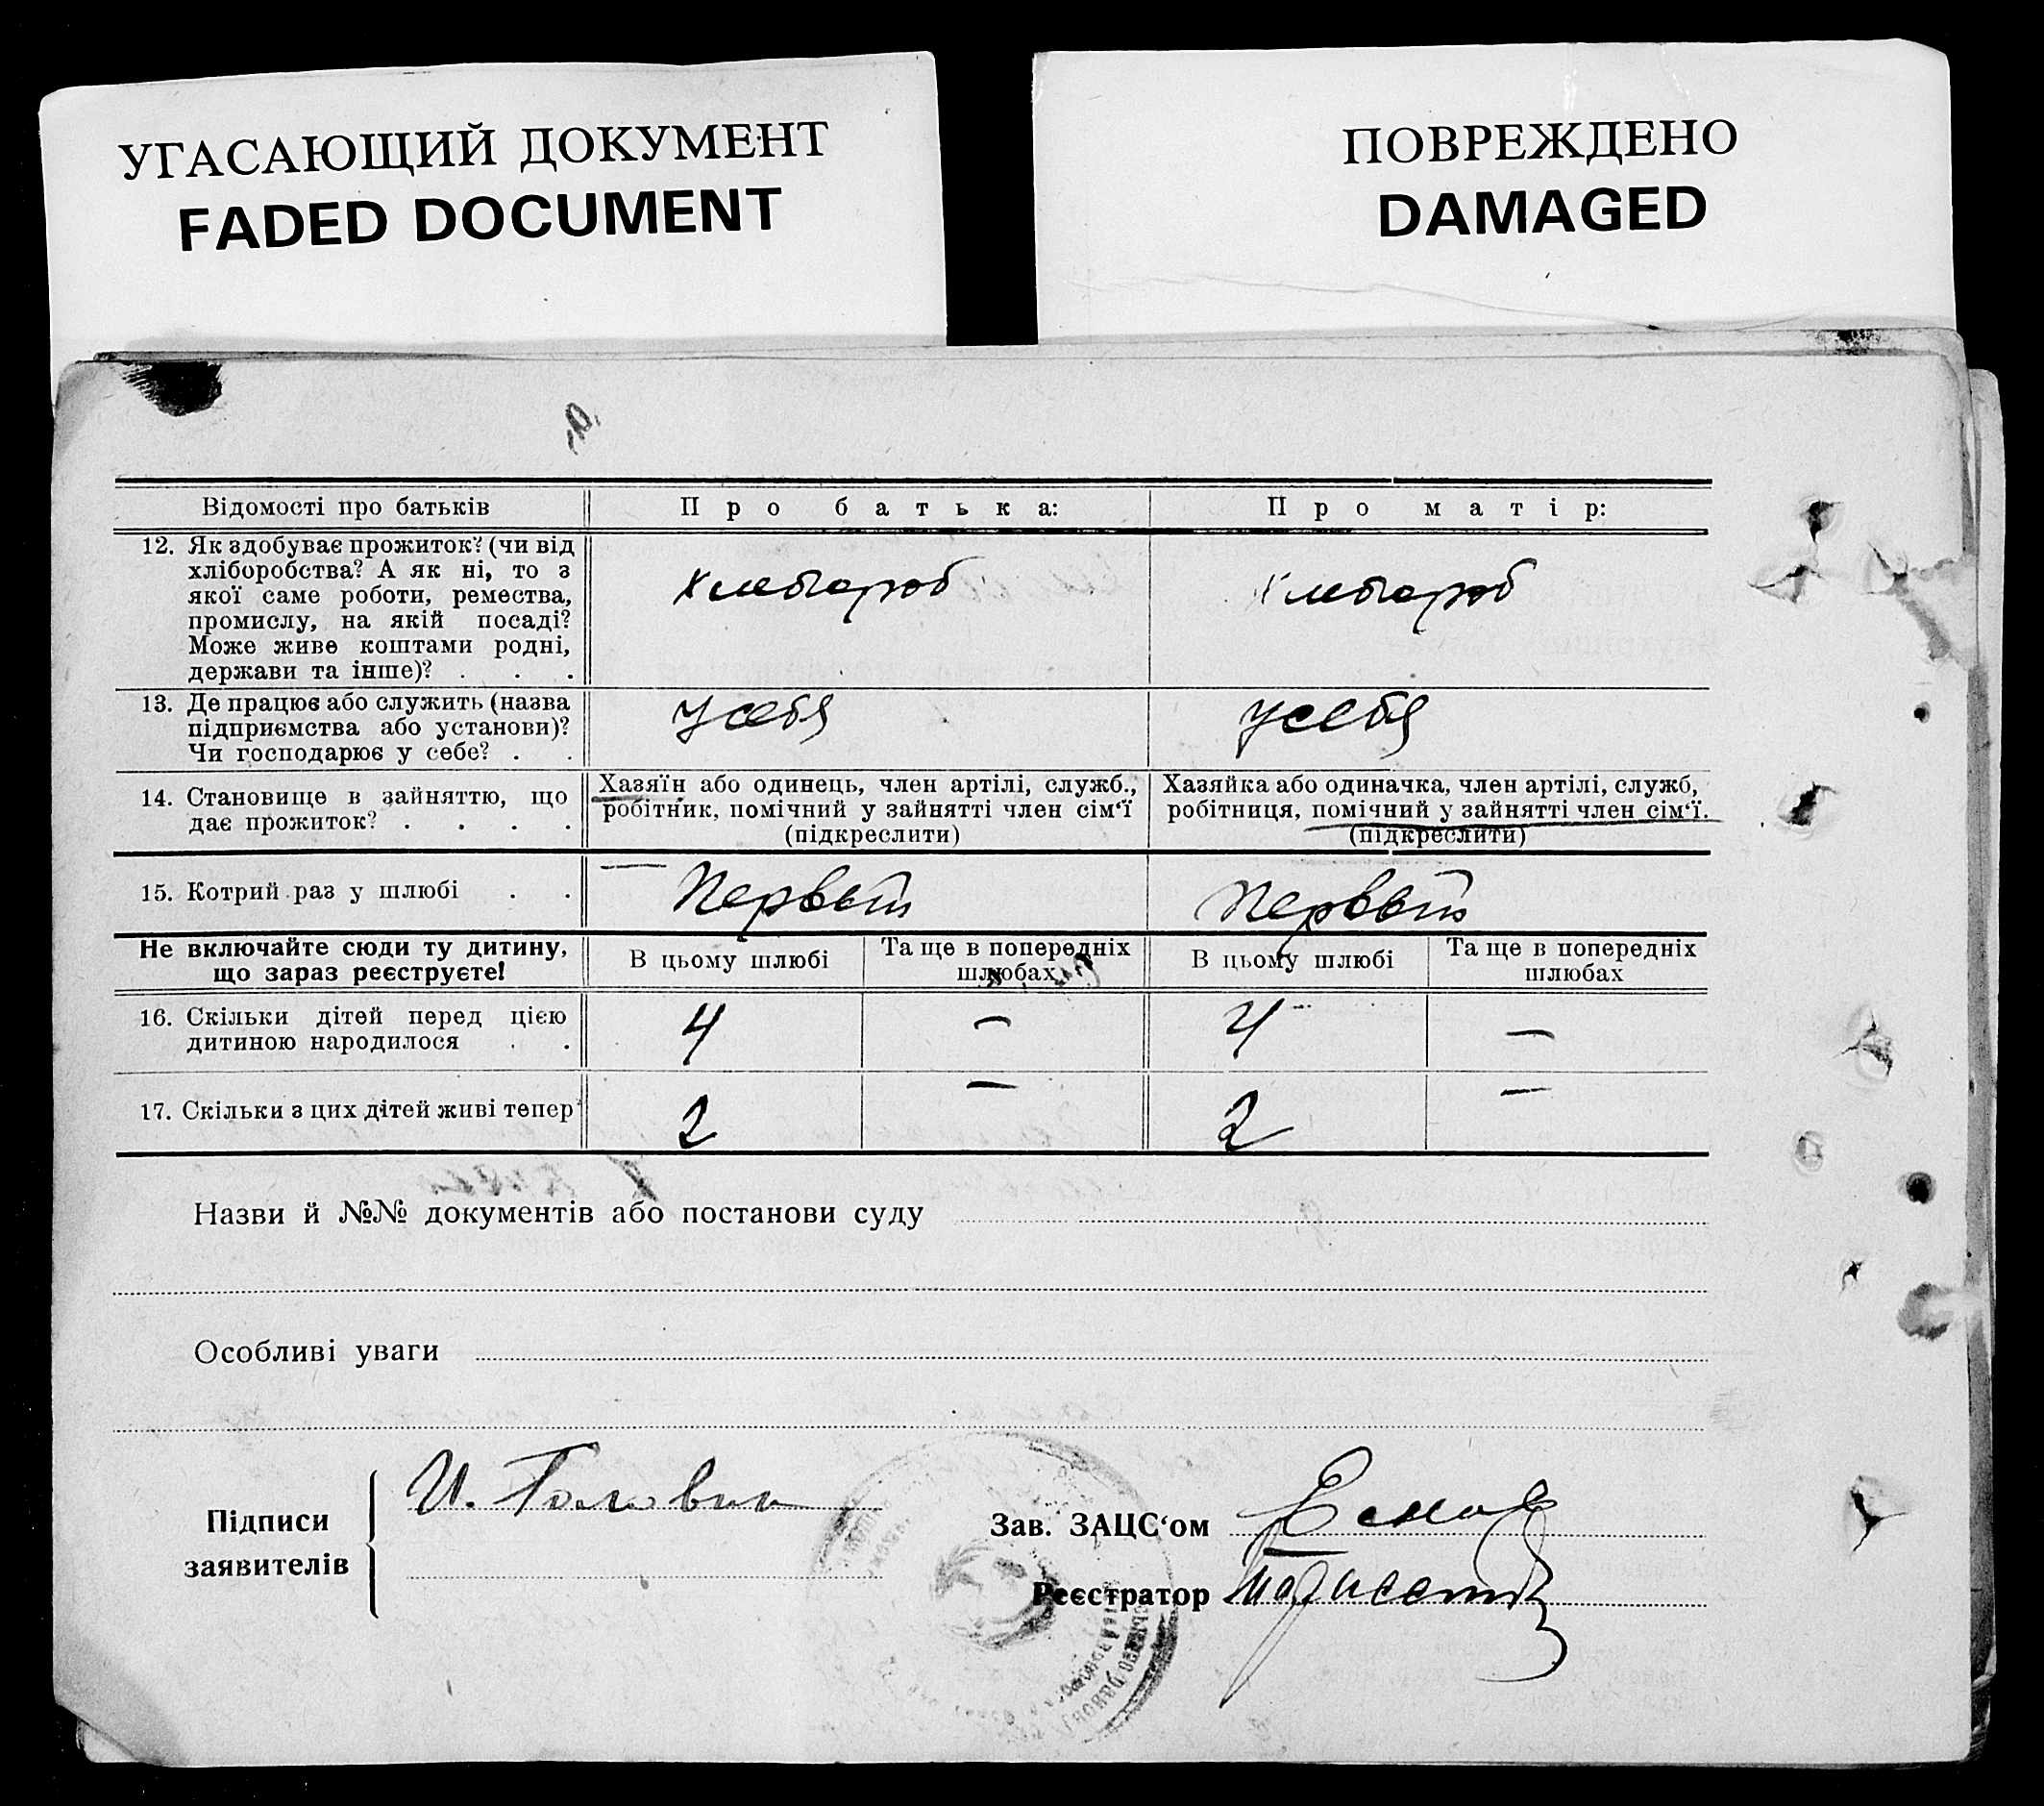 УГАСАЮЩИЙ ДОКУМЕНТ
FADED DOCUMENT
ПОВРЕЖДЕНО
DAMAGED
Відомості про батьків
Про батька:
Про матір:
12. Як здобуває прожиток? (чи від
хліборобства? А як ні, то з
якої саме роботи, ремества,
промислу, на якій посаді?
Може живе коштами родні,
держави та інше)? . . .
Хлебороб
Хлебороб
13. Де працює або служить (назва
підприємства або установи)?
Чи господарює у себе? . .
У себя
У себя
14. Становище в зайняттю, що
дає прожиток? . . . .
Хазяїн або одинець, член артілі, служб.,
робітник, помічний у зайнятті член сім‘ї
(підкреслити)
Хазяйка або одиначка, член артілі, служб,
робітниця, помічний у зайнятті член сім‘ї.
(підкреслити)
15. Котрий раз у шлюбі . .
Первый
Первый
Не включайте сюди ту дитину,
що зараз реєструєте!
В цьому шлюбі
Та ще в попередніх
шлюбах
В цьому шлюбі
Та ще в попередніх
шлюбах
16. Скільки дітей перед цією
дитиною народилося . .
4
—
4
—
17. Скільки з цих дітей живі тепер
2
—
2
—
Назви й №№ документів або постанови суду
Особливі уваги
Підписи
заявителів
И. Головин
Зав. ЗАЦС‘ом
Реєстратор